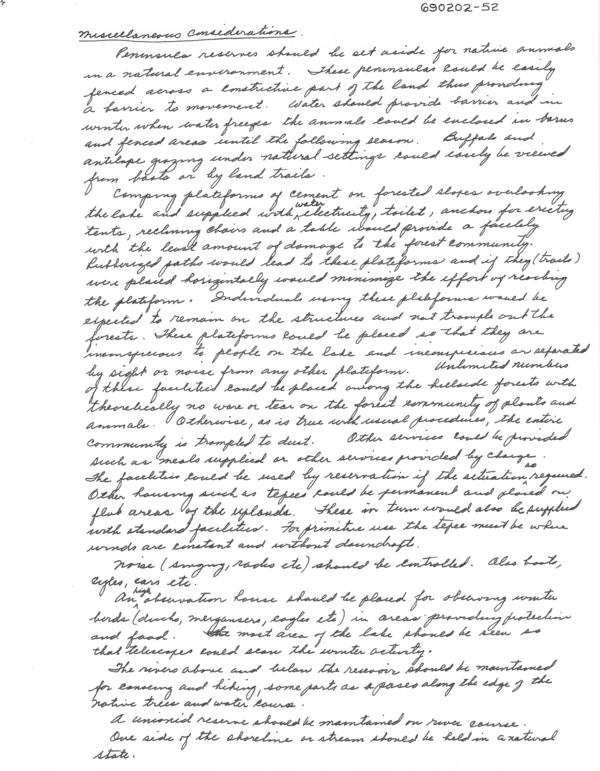 690202-52
Miscellaneous Considerations.
Peninsula reserves should be set aside for native animals
in a natural environment. These peninsulas could be easily
fenced across a constrictive part of the land thus providing
a barrier to movement. Water should provide barrier and in
winter when water freezes the animals could be enclosed in barns
and fenced areas until the following season. Buffalo and
antilope grazing under natural settings could easily be viewed
from boats or by land trails.
Camping plateforms of cement on forested slopes overlooking
the lake and supplied with water, electricity, toilet, anchors for erecting
tents, reclining chairs and a table would provide a facility
with the least amount of damage to the forest community.
Rubberized paths would lead to these plateforms and if they (trails)
were placed horizontally would minimize the effort of reaching
the plateform. Individuals using these plateforms would be
expected to remain on the structures and not trample out the
forests. These plateforms could be placed so that they are
inconspicious to people on the lake and inconspicious or separated
by sight or noise from any other plateform. Unlimited numbers
of these facilities could be placed among the hillside forests with
theoretically no ware or tear on the forest community of plants and
animals. Otherwise, as is true with usual procedures, the entire
community is trampled to dust. Other services could be provided
such as meals supplied or other services provided by charge.
The facilities could be used by reservation if the situation so required.
Other housing such as tepees could be permanent and placed on
flat areas of the uplands. These in turn would also be supplied
with standard facilities. For primitive use the tepee must be where
winds are constant and without downdraft.
Noise (singing, radios etc) should be controlled. Also boats,
cycles, cars etc.
An high observation house should be placed for observing winter
birds (ducks, mergansers, eagles etc) in areas providing protection
and food. The most area of the lake should be seen so
that telescopes could scan the winter activity.
The rivers above and below the resevoir should be maintained
for canoeing and hiking, some parts as spaces along the edge of the
native trees and water course.
A unionid reserve should be maintained on river course.
One side of the shoreline or stream should be held in a natural
state.